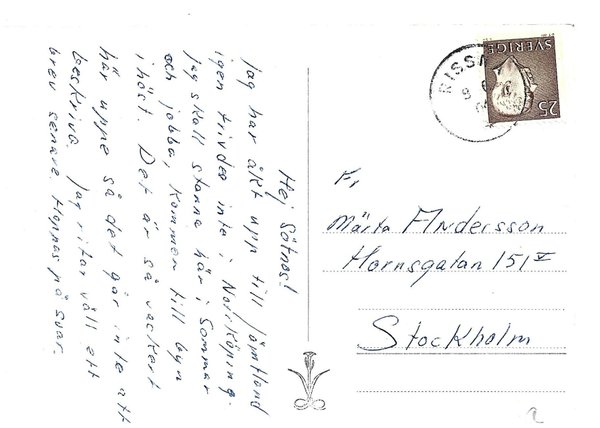 Hej Sötnos!
Jag har åkt upp till Jämtland
igen trivdes inte i Norrköping.
Jag skall stanna här i Sommar
och jobba, kommer till byn
i höst. Det är så vackert
här uppe så det går inte att
beskriva. Jag ritar väll ett
brev senare. Hoppas på svar.
SVERIGE
25
Fr,
Märta Andersson
Hornsgatan 151 V
Stockholm
2